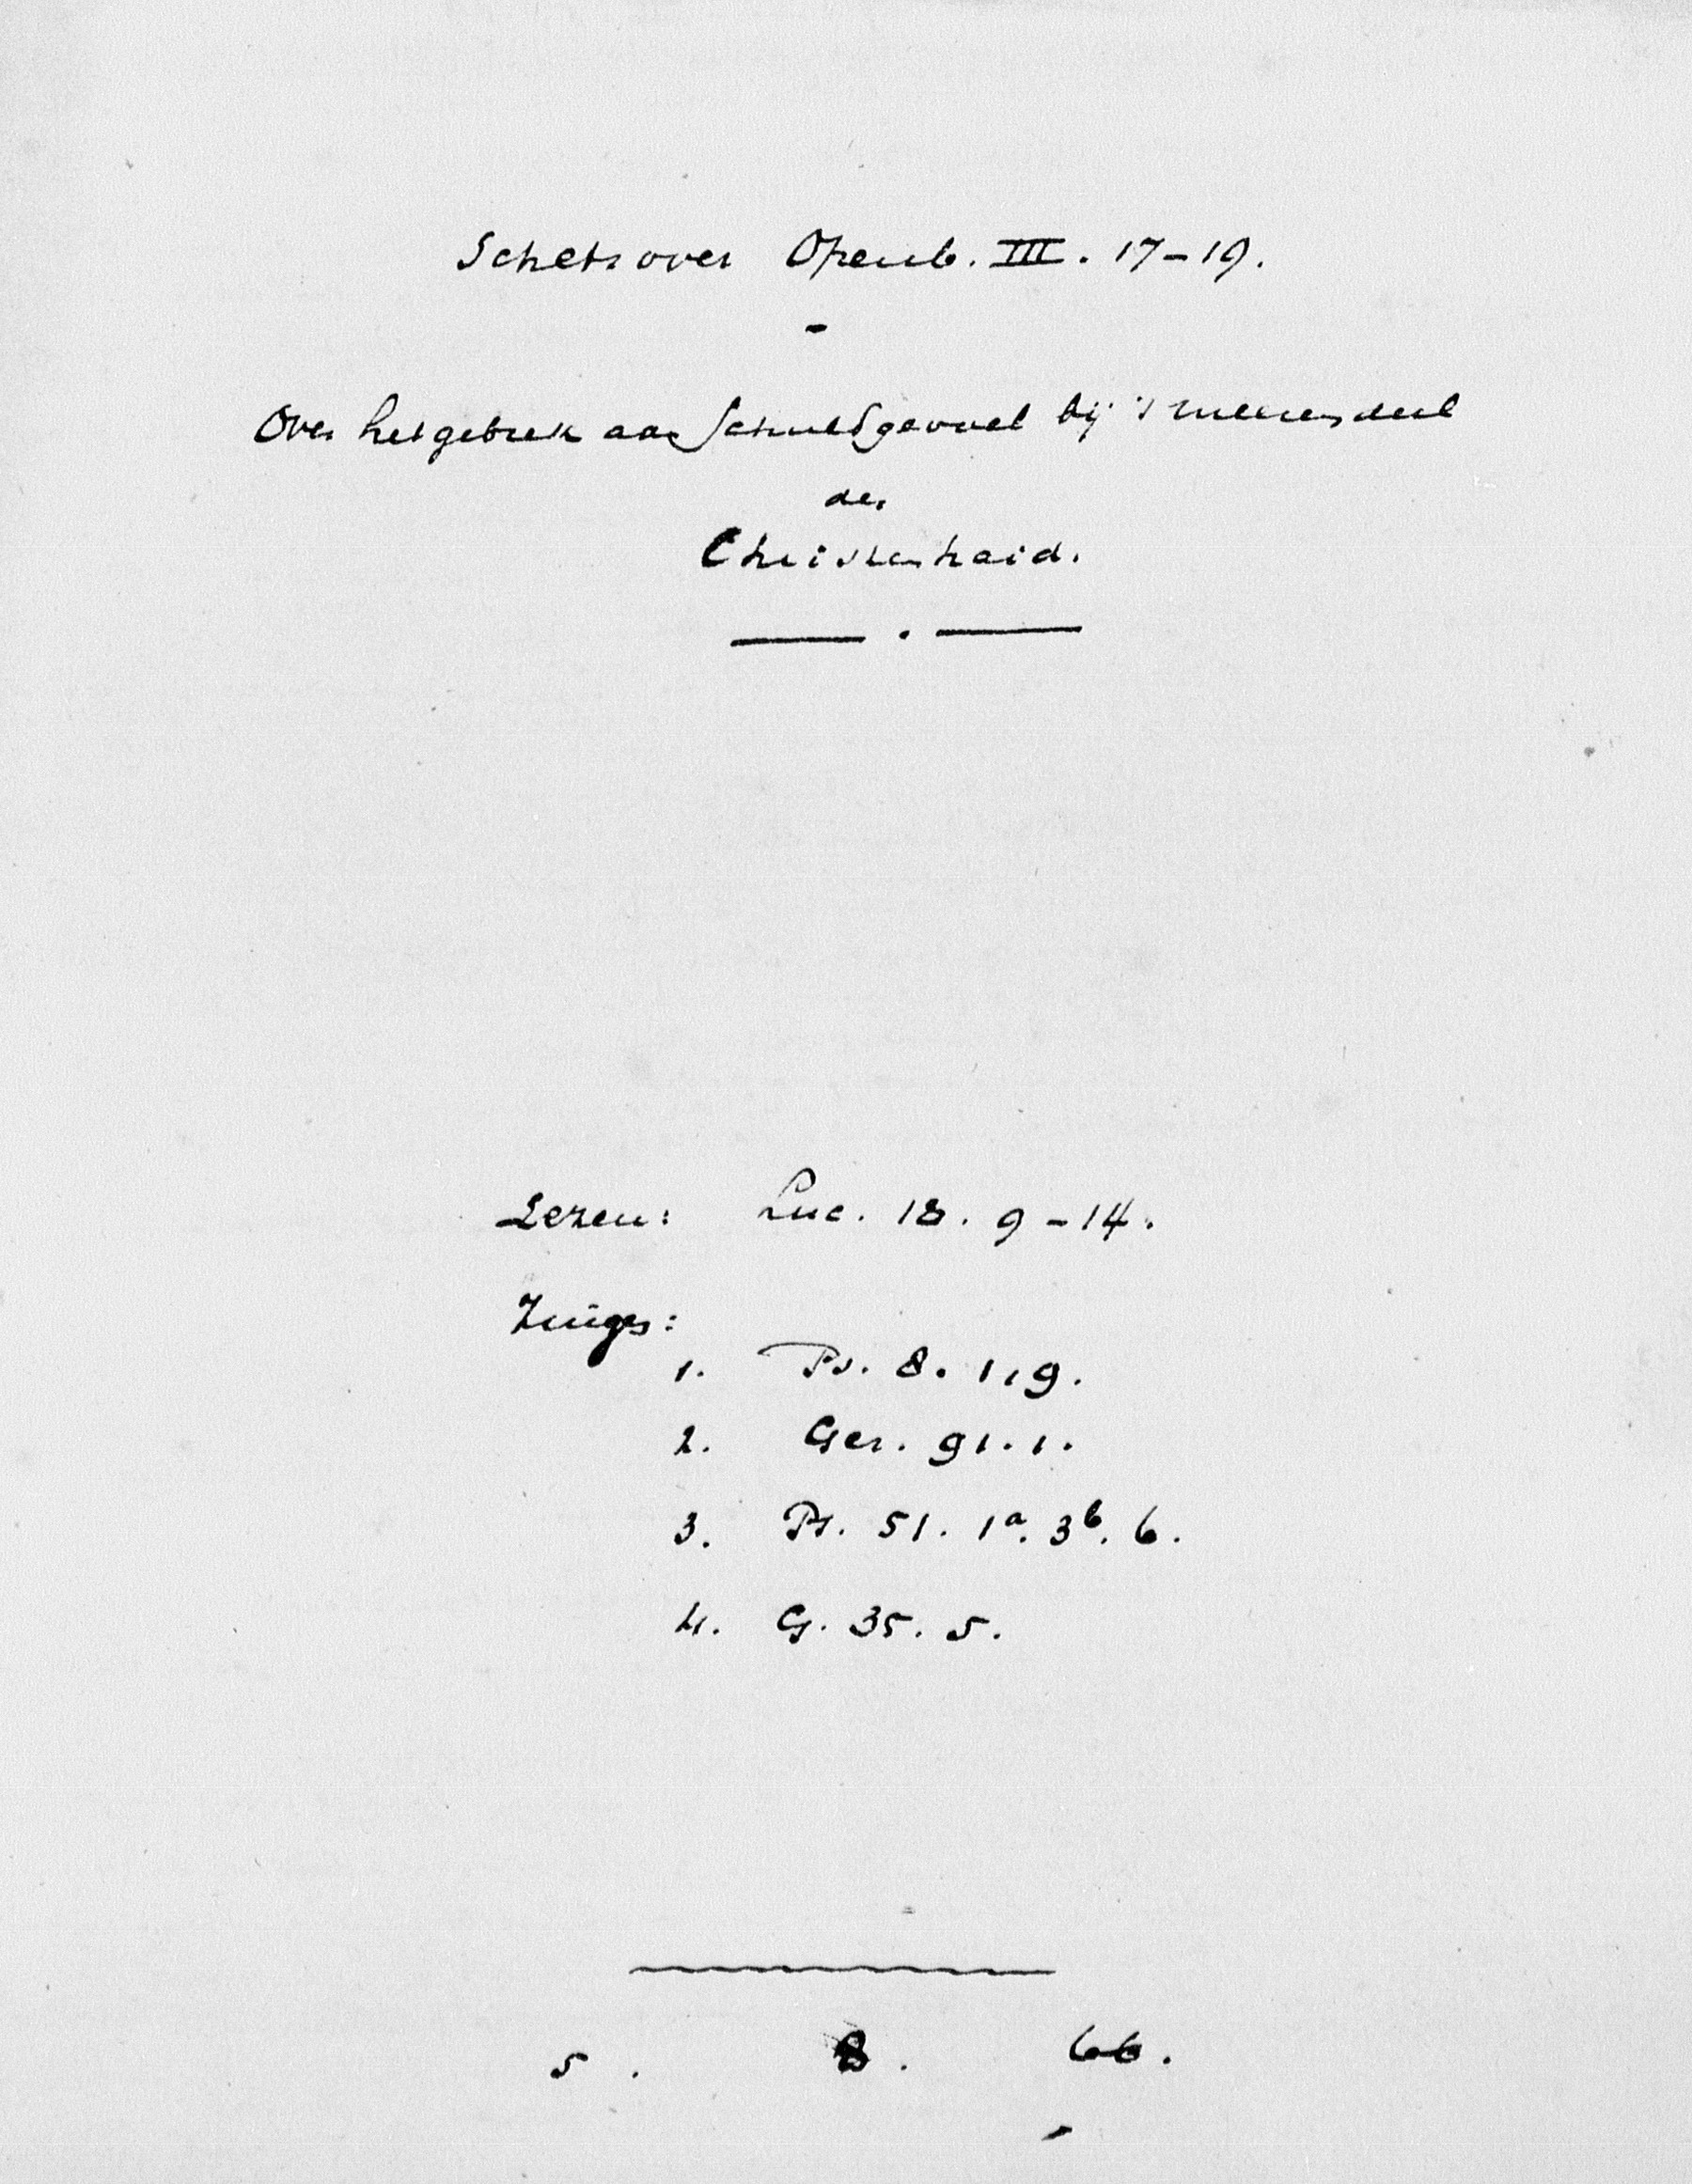 Schets over Openb. III. 17-19.
-
Over het gebrek aan Schuldgevoel bij 't meerendeel
der
Christenheid.
Lezen: Luc. 18. 9-14.
Zingen:
1. Ps. 8. 1, 9.
2. Gez. 91. 1.
3. Ps. 51. 1a. 3b. 6.
4. G. 35. 5.
5. 8. 66.